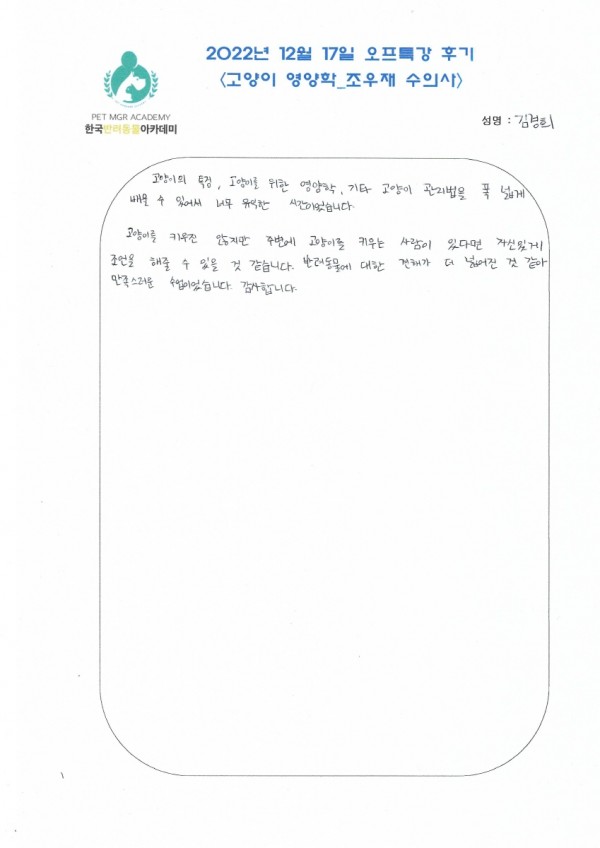 2022년 12월 17일 오프특강 후기
<고양이 영양학_조우재 수의사>
PET MGR ACADEMY
한국반려동물아카데미
성명 : 김경희
고양이의 특징, 고양이를 위한 영양학, 기타 고양이 관리법을 폭 넓게
배울 수 있어서 너무 유익한 시간이었습니다.
고양이를 키우진 않지만 주변에 고양이를 키우는 사람이 있다면 자신있게
조언을 해줄 수 있을 것 같습니다. 반려동물에 대한 견해가 더 넓어진 것 같아
만족스러운 수업이었습니다. 감사합니다.